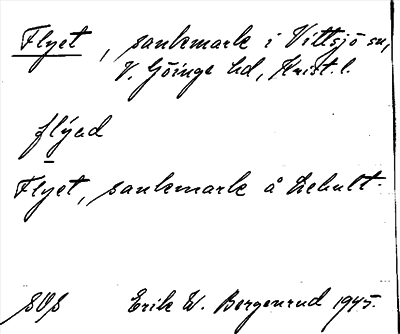 Flyet, sankmark i Vittsjö sn,
V. Göinge hd, Krist. l.
flýed
Flyet, sankmark å Lehult.
SOS Erik W. Bergenrud 1945.